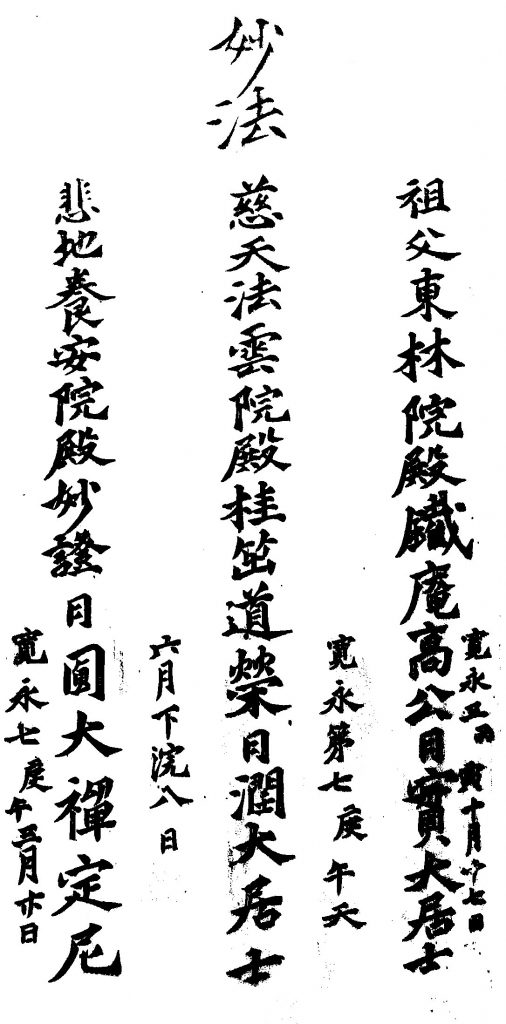 妙法
祖父東林院殿鐵庵高公日寳大居士
寛永三丙寅十月十七日
慈天法雲院殿桂岩道榮日潤大居士
寛永第七庚午天
六月下浣八日
悲地養安院殿妙證日圓大禪定尼
寛永七庚午三月廿日